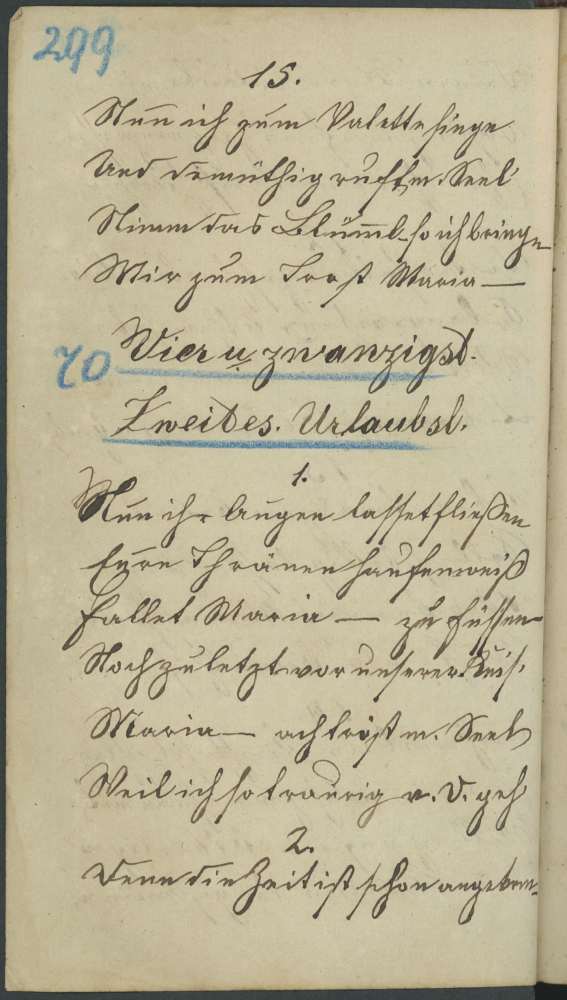 299
15.
Nun ich zum Valette singe
Und demüthig ruft m. Seel'
Nimm das Blümel so ich bringe
Mir zum Trost Maria —
70 Vier u. zwanzigst.
Zweites. Urlaubsl.
1.
Nun ihr Augen lasset fließen
Eure Thränen haufenweiß
Fallet Maria — zu füssen
Noch zuletzt vor unserer Reis'
Maria — ach tröst m. Seel
Weil ich so traurig v. D. geh'
2.
Denn die Zeit ist schon angekom-